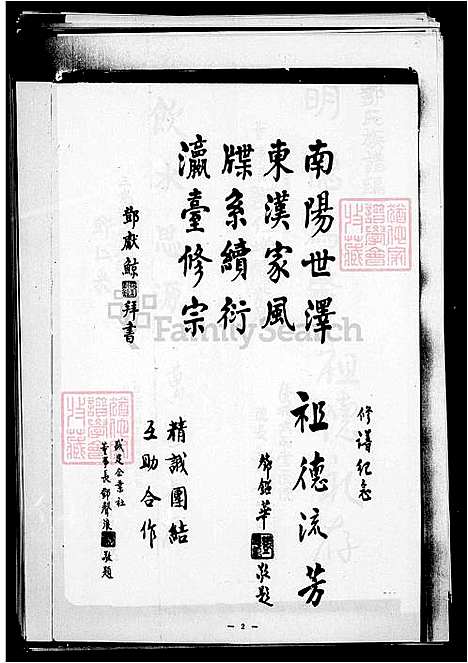 南陽世澤
東漢家風
牒系續衍
瀛臺修宗
鄧獻鯨拜書
修譜紀念
祖德流芳
鄧鎰華
敬題
精誠團結
互助合作
成足企業社
董事長鄧聲浪敬題
FamilySearch
— 2 —